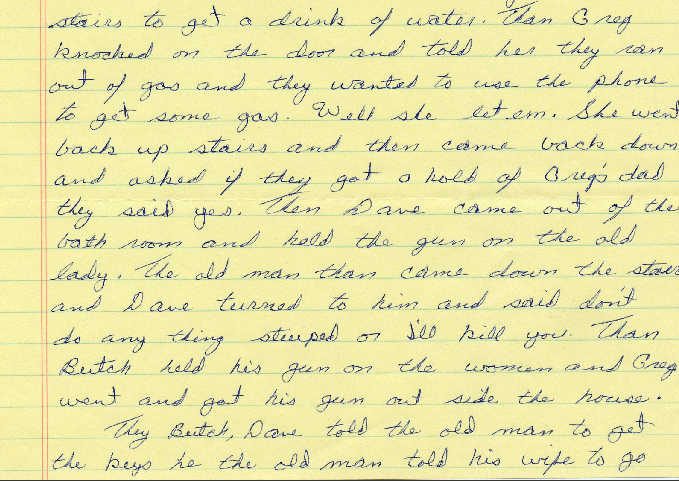 stairs to get a drink of water. Than Greg
knocked on the door and told her they ran
out of gas and they wanted to use the phone
to get some gas. Well she let em. She went
back up stairs and then came back down
and asked if they got a hold of Greg's dad
they said yes. Then Dave came out of the
bath room and held the gun on the old
lady. The old man than came down the stairs
and Dave turned to him and said don't
do any thing steuped or I'll kill you. Than
Butch held his gun on the women and Greg
went and got his gun out side the house.
They Butch, Dave told the old man to get
the keys he the old man told his wife to go